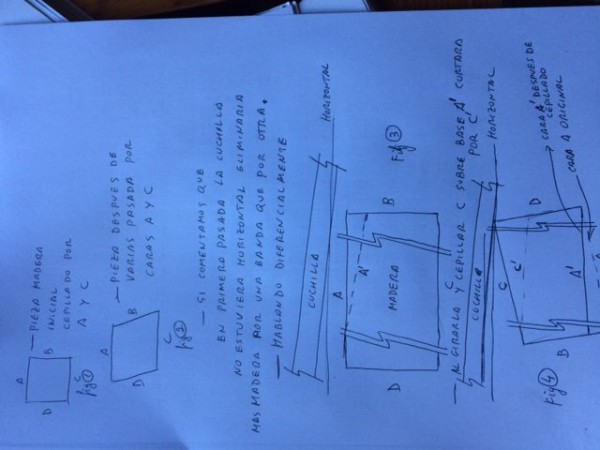 A
D B
C
fig ①
— PIEZA MADERA
INICIAL
CEPILLADO POR
A Y C
A
B
D
C
fig ②
— PIEZA DESPUES DE
VARIAS PASADA POR
CARAS A Y C
— SI COMENTAMOS QUE
EN PRIMERA PASADA LA CUCHILLA
NO ESTUVIERA HORIZONTAL ELIMINARIA
MAS MADERA POR UNA BANDA QUE POR OTRA.
— HABLANDO DIFERENCIALMENTE
CUCHILLA
HORIZONTAL
A
A'
D
MADERA
B
Fig ③
— AL GIRARLA Y CEPILLAR C SOBRE BASE A' CORTARA
POR C'
CUCHILLA
HORIZONTAL
C
C'
B
D
A'
Fig ④
CARA A' DESPUES DE
CEPILLADO
CARA A ORIGINAL